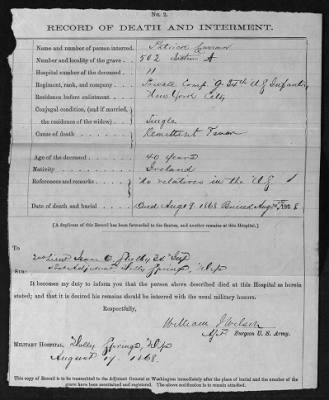 No. 2.
RECORD OF DEATH AND INTERMENT.
Name and number of person interred,
Number and locality of the grave, 502 Section A
Hospital number of the deceased, 11
Regiment, rank, and company, Private Comp. G 34th U.S. Infantry
Residence before enlistment, New York City
Conjugal condition, (and if married,
the residence of the widow,) Single
Cause of death, Remittent Fever
Age of the deceased, 40 years
Nativity, Ireland
References and remarks, No relatives in the U.S
Date of death and burial, Died Augt 9 1868 Buried Augt
[A duplicate of this Record has been forwarded to the Sexton, and another remains at this Hospital.]
To
2nd Lieut. Inf
Post Adjutant Holly Springs, Miss
SIR:
It becomes my duty to inform you that the person above described died at this Hospital as herein
stated; and that it is desired his remains should be interred with the usual military honors.
Respectfully,
William J Wilson
Surgeon U. S. Army.
MILITARY HOSPITAL, Holly Springs, Miss
August 1868.
This copy of Record is to be transmitted to the Adjutant General at Washington immediately after the place of burial and the number of the
grave have been ascertained and registered. The above notification is to remain attached.